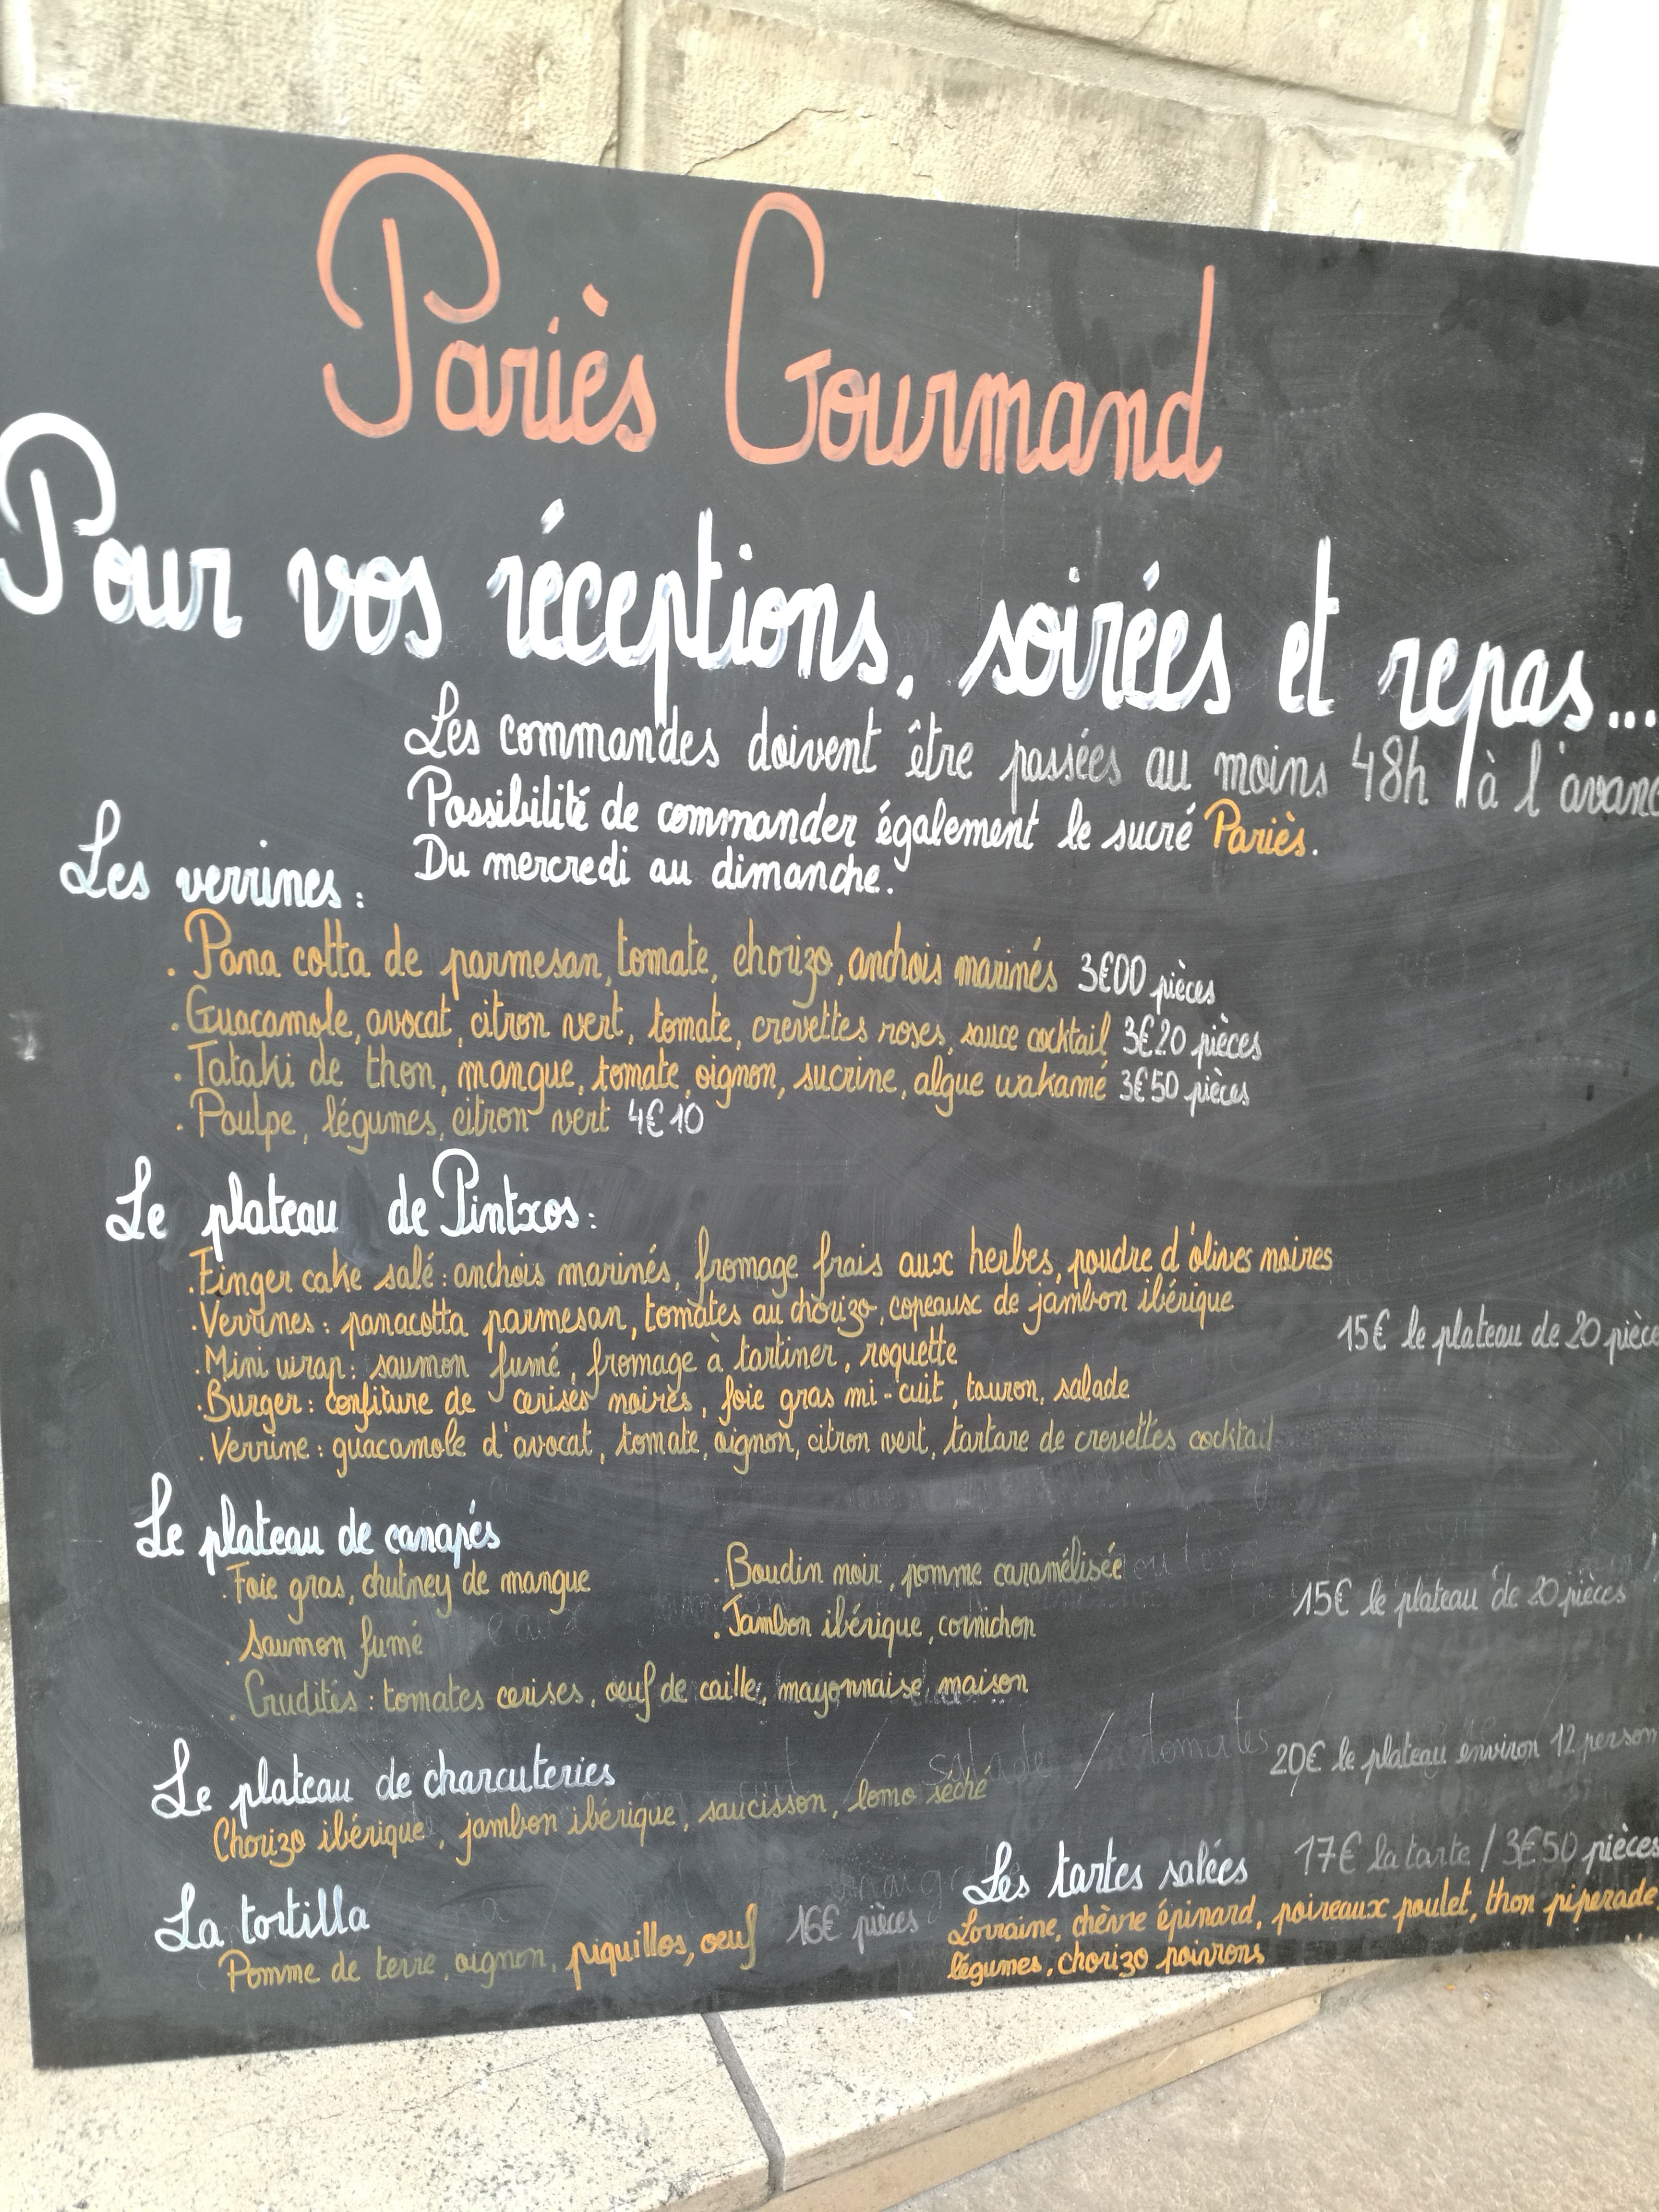 Pariès Gourmand
Pour vos réceptions, soirées et repas...
Les commandes doivent être passées au moins 48h à l'avanc
Possibilité de commander également le sucré Pariès.
Du mercredi au dimanche.
Les verrines :
. Pana cotta de parmesan, tomate, chorizo, anchois marinés 3€00 pièces
. Guacamole, avocat, citron vert, tomate, crevettes roses, sauce cocktail 3€20 pièces
. Tataki de thon, mangue, tomate, oignon, sucrine, algue wakamé 3€50 pièces
. Poulpe, légumes, citron vert 4€10
Le plateau de Pintxos :
. Finger cake salé : anchois marinés, fromage frais aux herbes, poudre d'olives noires
. Verrines : panacotta parmesan, tomates au chorizo, copeaux de jambon ibérique
15€ le plateau de 20 pièce
. Mini wrap : saumon fumé, fromage à tartiner, roquette
. Burger : confiture de cerises noires, foie gras mi-cuit, touron, salade
. Verrine : guacamole d'avocat, tomate, oignon, citron vert, tartare de crevettes cocktail
Le plateau de canapés
. Foie gras, chutney de mangue
. Boudin noir, pomme caramélisée
15€ le plateau de 20 pièces
. Saumon fumé
. Jambon ibérique, cornichon
. Crudités : tomates cerises, oeuf de caille, mayonnaise maison
salade / tomates
20€ le plateau environ 12 person
Le plateau de charcuteries
Chorizo ibérique, jambon ibérique, saucisson, lomo séché
Les tartes salées 17€ la tarte / 3€50 pièces
La tortilla
Lorraine, chèvre épinard, poireaux poulet, thon piperade,
légumes, chorizo poivrons
Pomme de terre, oignon, piquillos, oeuf 16€ pièces